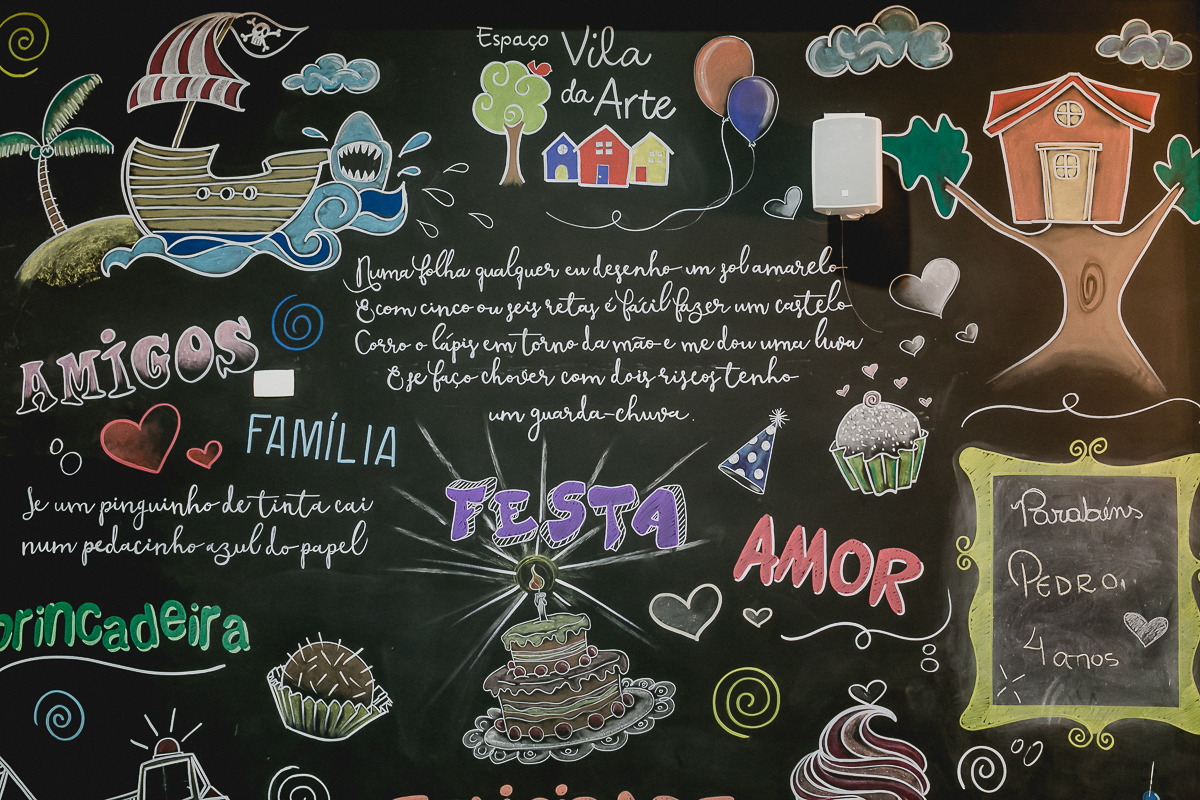 Espaço Vila
da Arte
Numa folha qualquer eu desenho um sol amarelo
E com cinco ou seis retas é fácil fazer um castelo
Corro o lápis em torno da mão e me dou uma luva
E se faço chover com dois riscos tenho
um guarda-chuva.
AMIGOS
FAMÍLIA
Se um pinguinho de tinta cai
num pedacinho azul do papel
FESTA
AMOR
Parabéns
PEDRO..
4 anos
brincadeira